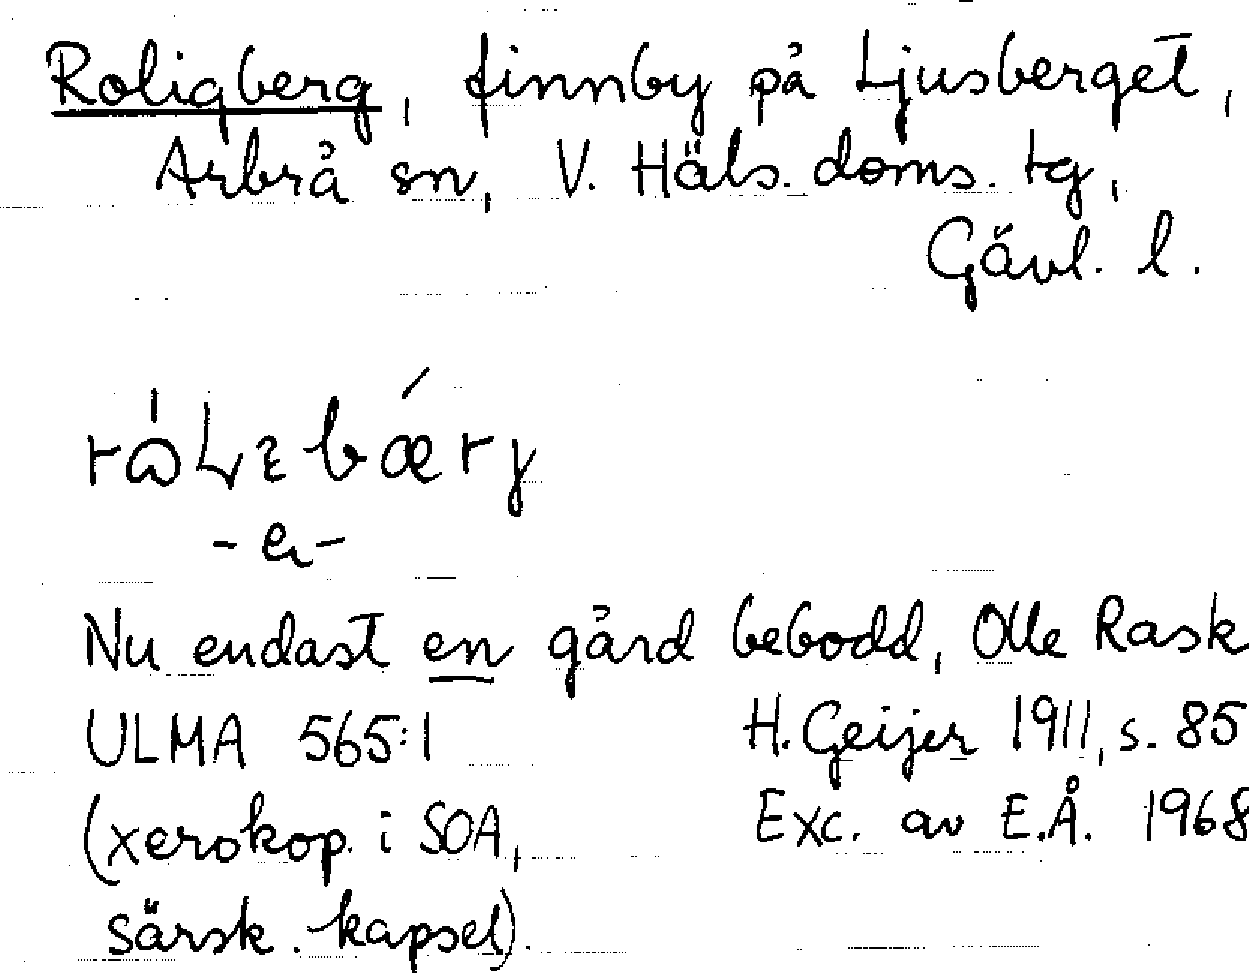 Roligberg, finnby på Ljusberget,
Arbrå sn, V. Häls. doms. tg,
Gävl. l.
-e-
Nu endast en gård bebodd, Olle Rask
ULMA 565:1 H. Geijer 1911, s. 85
(xerokop. i SOA, Exc. av E.Å. 1968
särsk. kapsel).